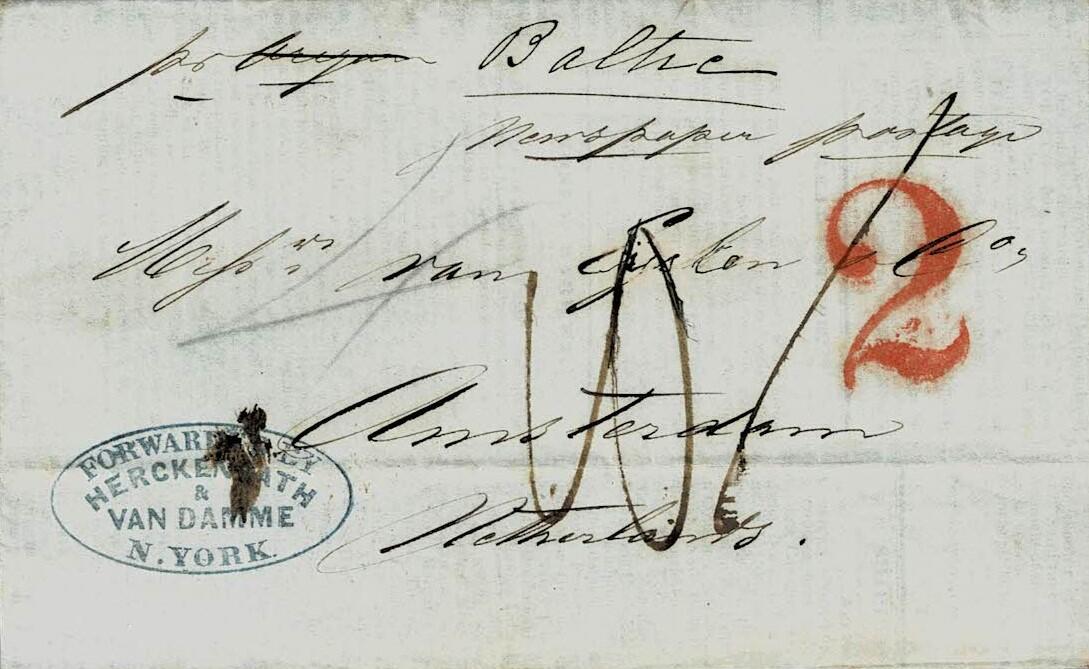 pr Baltic
Newspaper postage
Messrs van & Co,
2
Amsterdam
Netherlands.
FORWARDED BY
HERCKENRATH
&
VAN DAMME
N. YORK.